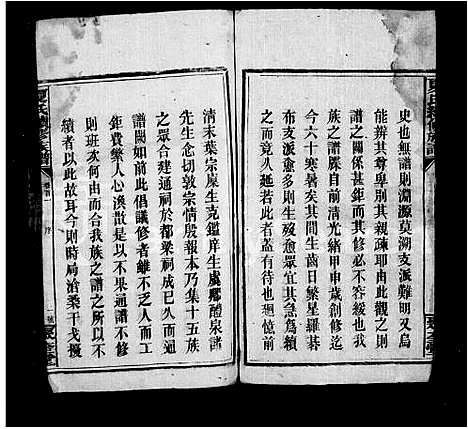 史也無譜則淵源莫溯支派難明又烏
能辨其尊卑別其親疎耶由此觀之則
譜之關係甚鉅而其修必不容緩也我
族之譜屛自前清光緒甲申歲創修迄
今六十寒暑矣其間生齒日繁星羅碁
布支派愈多則生歿愈眾宜其急爲續
之而竟久延若此者蓋有待也迴憶前
清末葉宗廩生克鑑庠生虞鄉醴泉諸
先生念切敦宗情殷報本乃合十五族
之眾合建通祠於都梁祠成已久而通
譜闕如前此倡議修者雖不乏人而工
鉅費繁人心渙散是以不果通譜不修
則班次何由而合我族之譜之所以不
續者以此故耳今則時局沧桑干戈擾
序